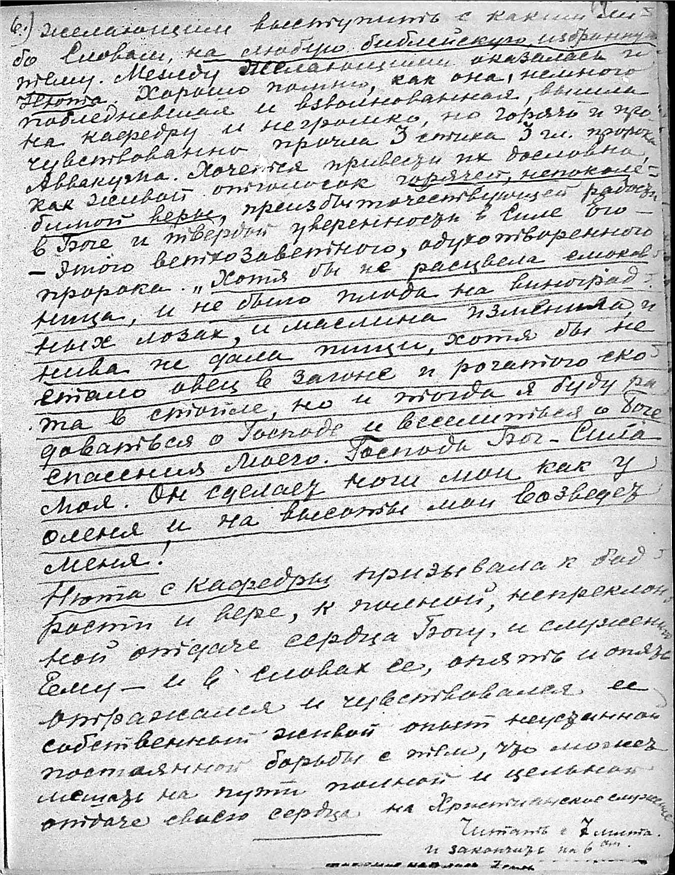 6.) желающим выступить с каким ли-
бо Словом, на любую библейскую избранную
тему. Между желающими оказалась и
Нюта. Хорошо помню, как она, немного
побледневшая и взволнованная, вышла
на кафедру и негромко, но горячо и про-
чувствованно прочла 3 стиха 3 гл. пророка
Аввакума. Хочется привести их дословно,
как живой отголосок горячей, непоколе-
бимой веры, преизбыточествующей радости
в Боге и твердой уверенности в Силе Его —
— этого ветхозаветного, одухотворенного
пророка. „Хотя бы не расцвела смоков-
ница, и не было плода на виноград-
ных лозах, и маслина изменила, и
нива не дала пищи, хотя бы не
стало овец в загоне и рогатого ско-
та в стойле, но и тогда я буду ра-
доваться о Господе и веселиться о Боге
спасения моего. Господь Бог - Сила
моя. Он сделает ноги мои как у
оленя и на высоты мои возведет
меня!
Нюта с кафедры призывала к бод-
рости и вере, к полной, непреклон-
ной отдаче сердца Богу, и служению
Ему — и в словах ее, опять и опять
отражался и чувствовался ее
собственный живой опыт неустанной
постоянной борьбы с тем, что может
мешать на пути полной и цельной
отдаче своего сердца на Христианское служение
Читать с 7 листа.
и закончить на 6